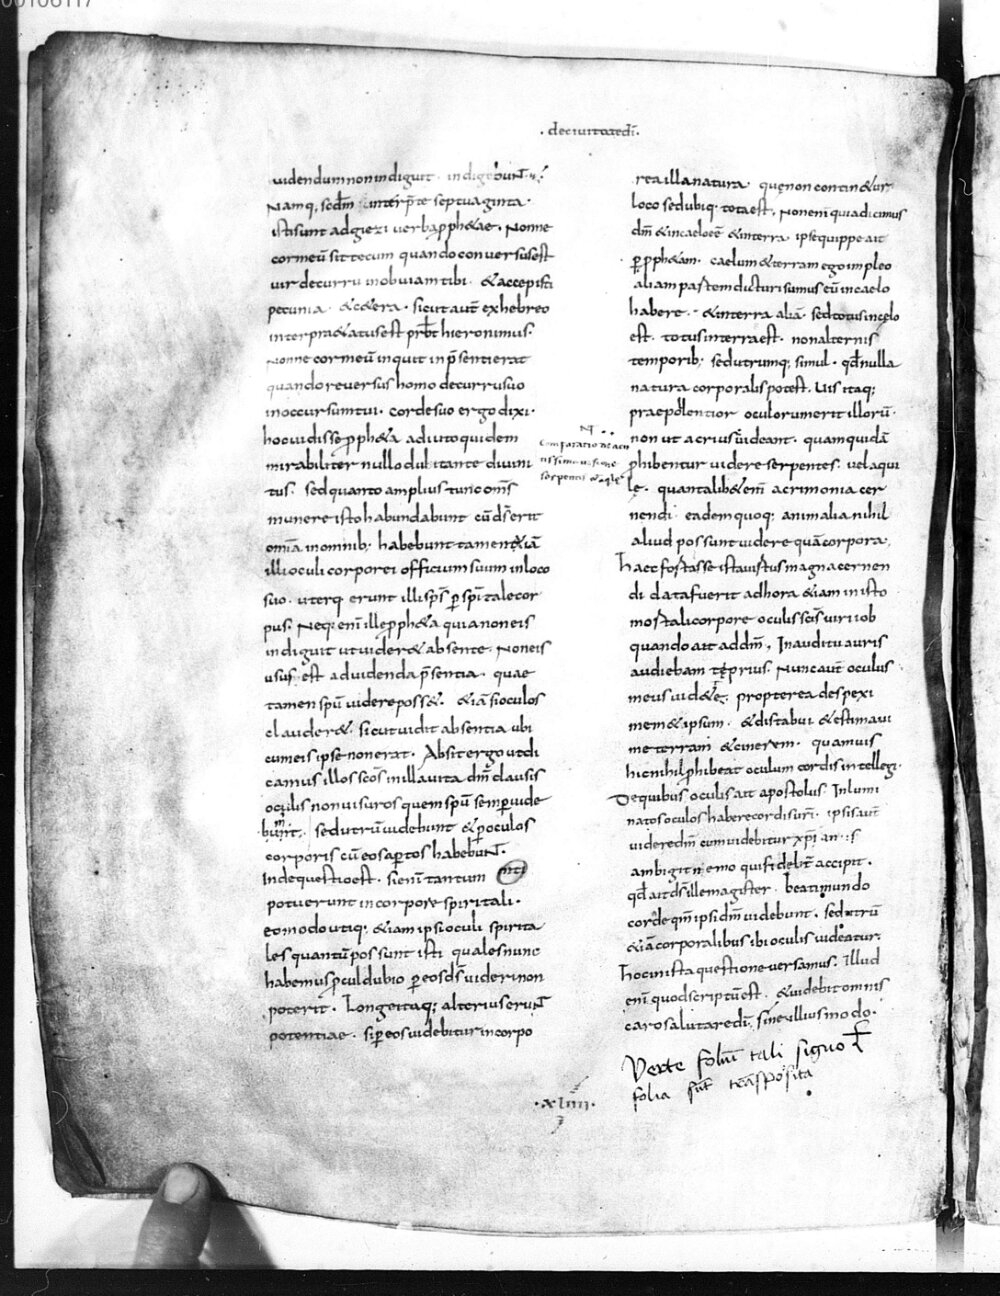 00106117
.deciuitatedī.
uidendumnonindiguit. indigebunt.
Namq, scdm interpte septuaginta.
istisunt adgiezi uerbapphetae. Nonne
cormeū sittecum quandoconuersusest
uir decurru inobuiamtibi. &accepisti
pecunia. &cetera. sicutaut exhebreo
interpraetatusest prbt hieronimus.
Nonne cormeū inquit inpsentierat
quandoreuersus homo decurrusuo
inoccursumtui. cordesuo ergo dixit
hocuidissepropheta adiutoquidem
mirabiliter nullodubitante diuini
tus. sedquanto amplius tunc oms
munere istohabundabunt cūdserit
omīa inomnib; habebunt tamenetiā
illioculi corporei officium suum inloco
suo. uterq erunt illisps p spitalecor
pus. Neq; enī illepropheta quianoneis
indiguit utuideretabsente. Noneis
usus est aduidenda psentia. quae
tamen spū uidereposset. &iāsioculos
clauderet. sicutuidit absentia ubi
cumeis ipsenonerat. Absit ergo utdi
camus illos scos inillauita dm clausis
oculis nonuisuros quemspū semperuide
bunt. sedutrū uidebunt &poculos
corporis cūeosaptos habebunt.
Indequestioest. sienī tantum
potuerunt incorpore spiritali.
eomodoutiq; &iam ipsioculi spirita
les quantūpossunt isti qualesnunc
habemus pculdubio peosds uiderinon
poterit. Longeitaq; alteriuserunt
potentiae. sipeosuidebitur incorpo
.xliiii.
Comparatio deacu
tissima uisione
serpentis &aqile
reaillanatura quenoncontinetur
loco sedubiq. totaest. Nonenī quiadicimus
dm &incaeloeē &interra ipsequippe ait
p pphetam. caelum&terram egoimpleo
aliampartemdicturisumus eū incaelo
habere. &interra aliā. sedtotusincelo
est. totusinterraest. nonalternis
temporib; sedutrumq; simul. qdnulla
natura corporalispotest. Uis itaq;
praepollentior oculorumerit illorū.
non ut acriusuideant. quamquidā
phibentur uidere serpentes. uelaqui
le. quantalibetenī acrimonia cer
nendi. eademquoq; animalia nihil
aliud possuntuidere quācorpora.
Haecfortasse istauirtusmagnacernen
di datafuerit adhora &iam inisto
mortalicorpore oculis scis uiri iob
quando ait addm, Inauditu auris
audiebam te prius. Nuncaut oculus
meus uidet te, propterea despexi
memetipsum. &distabui &estimaui
meterram &cinerem. quamuis
hicnihilphibeat oculum cordis intellegi.
Dequibus oculis ait apostolus. Inlumi
natosoculos haberecordisuri. ipsisaut
uideredm cumuidebitur xpi
ambigit nemo quifidelit accipit.
qd ait ds illemagister. beatimundo
corde qm ipsidm uidebunt. sedutrū
&iācorporalibus ibi oculis uideatur.
Hocinista questioneuersamus. Illud
enī quodscriptūest. &uidebitomnis
carosalutaredi. sineulliusnodo.
Verte foliū tali signo
folia sūt transposita